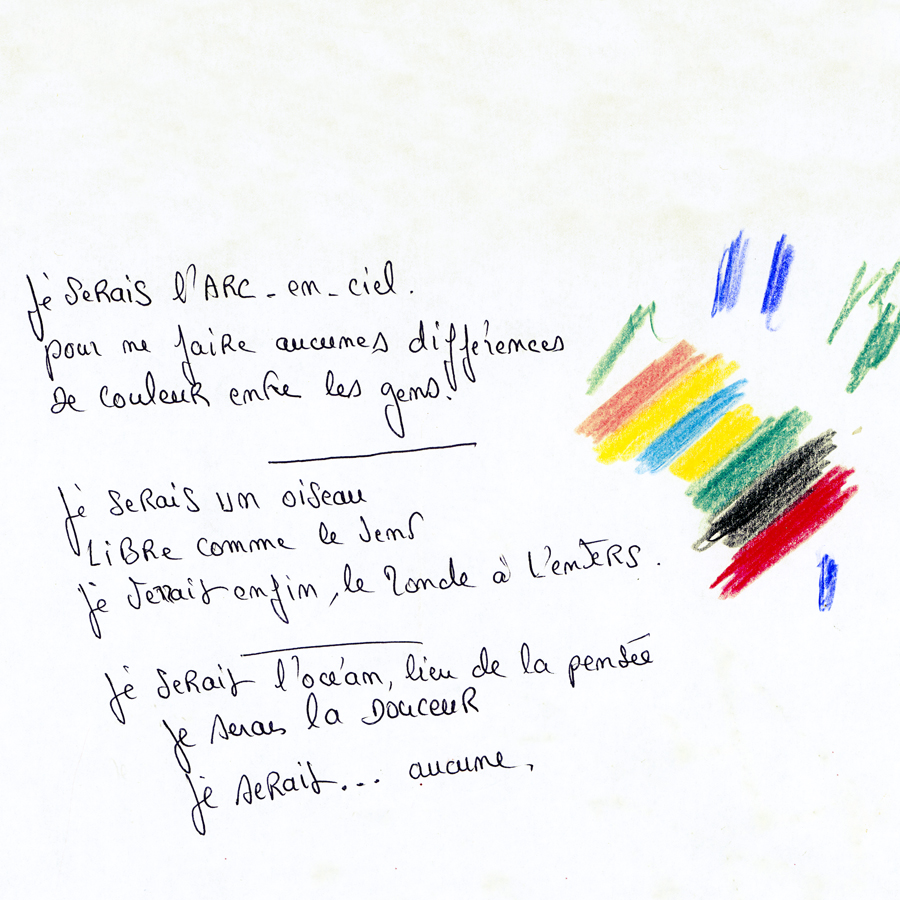 je serais l'ARC-en-ciel.
pour ne faire aucunes différences
de couleur entre les gens.
je serais un oiseau
LIBRE comme le
je enfin, le à L'enVERS.
je serait l'océan, lieu de la pensée
je serais la DOUCEUR
je serait... aucune,